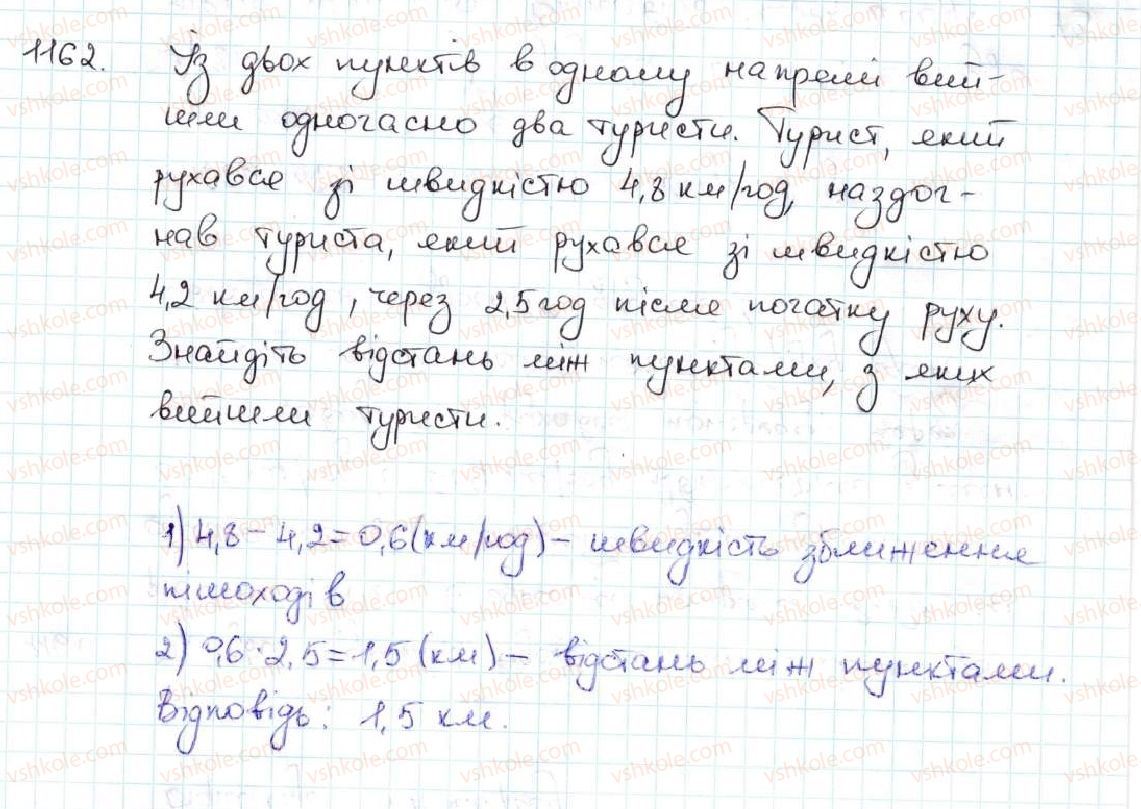 1162. Із двох пунктів в одному напрямі вий-
шли одночасно два туристи. Турист, який
рухався зі швидкістю 4,8 км/год, наздог-
нав туриста, який рухався зі швидкістю
4,2 км/год, через 2,5 год після початку руху.
Знайдіть відстань між пунктами, з яких
вийшли туристи.
1) 4,8 - 4,2 = 0,6 (км/год) - швидкість зближення
пішоходів
2) 0,6 · 2,5 = 1,5 (км) - відстань між пунктами.
Відповідь: 1,5 км.